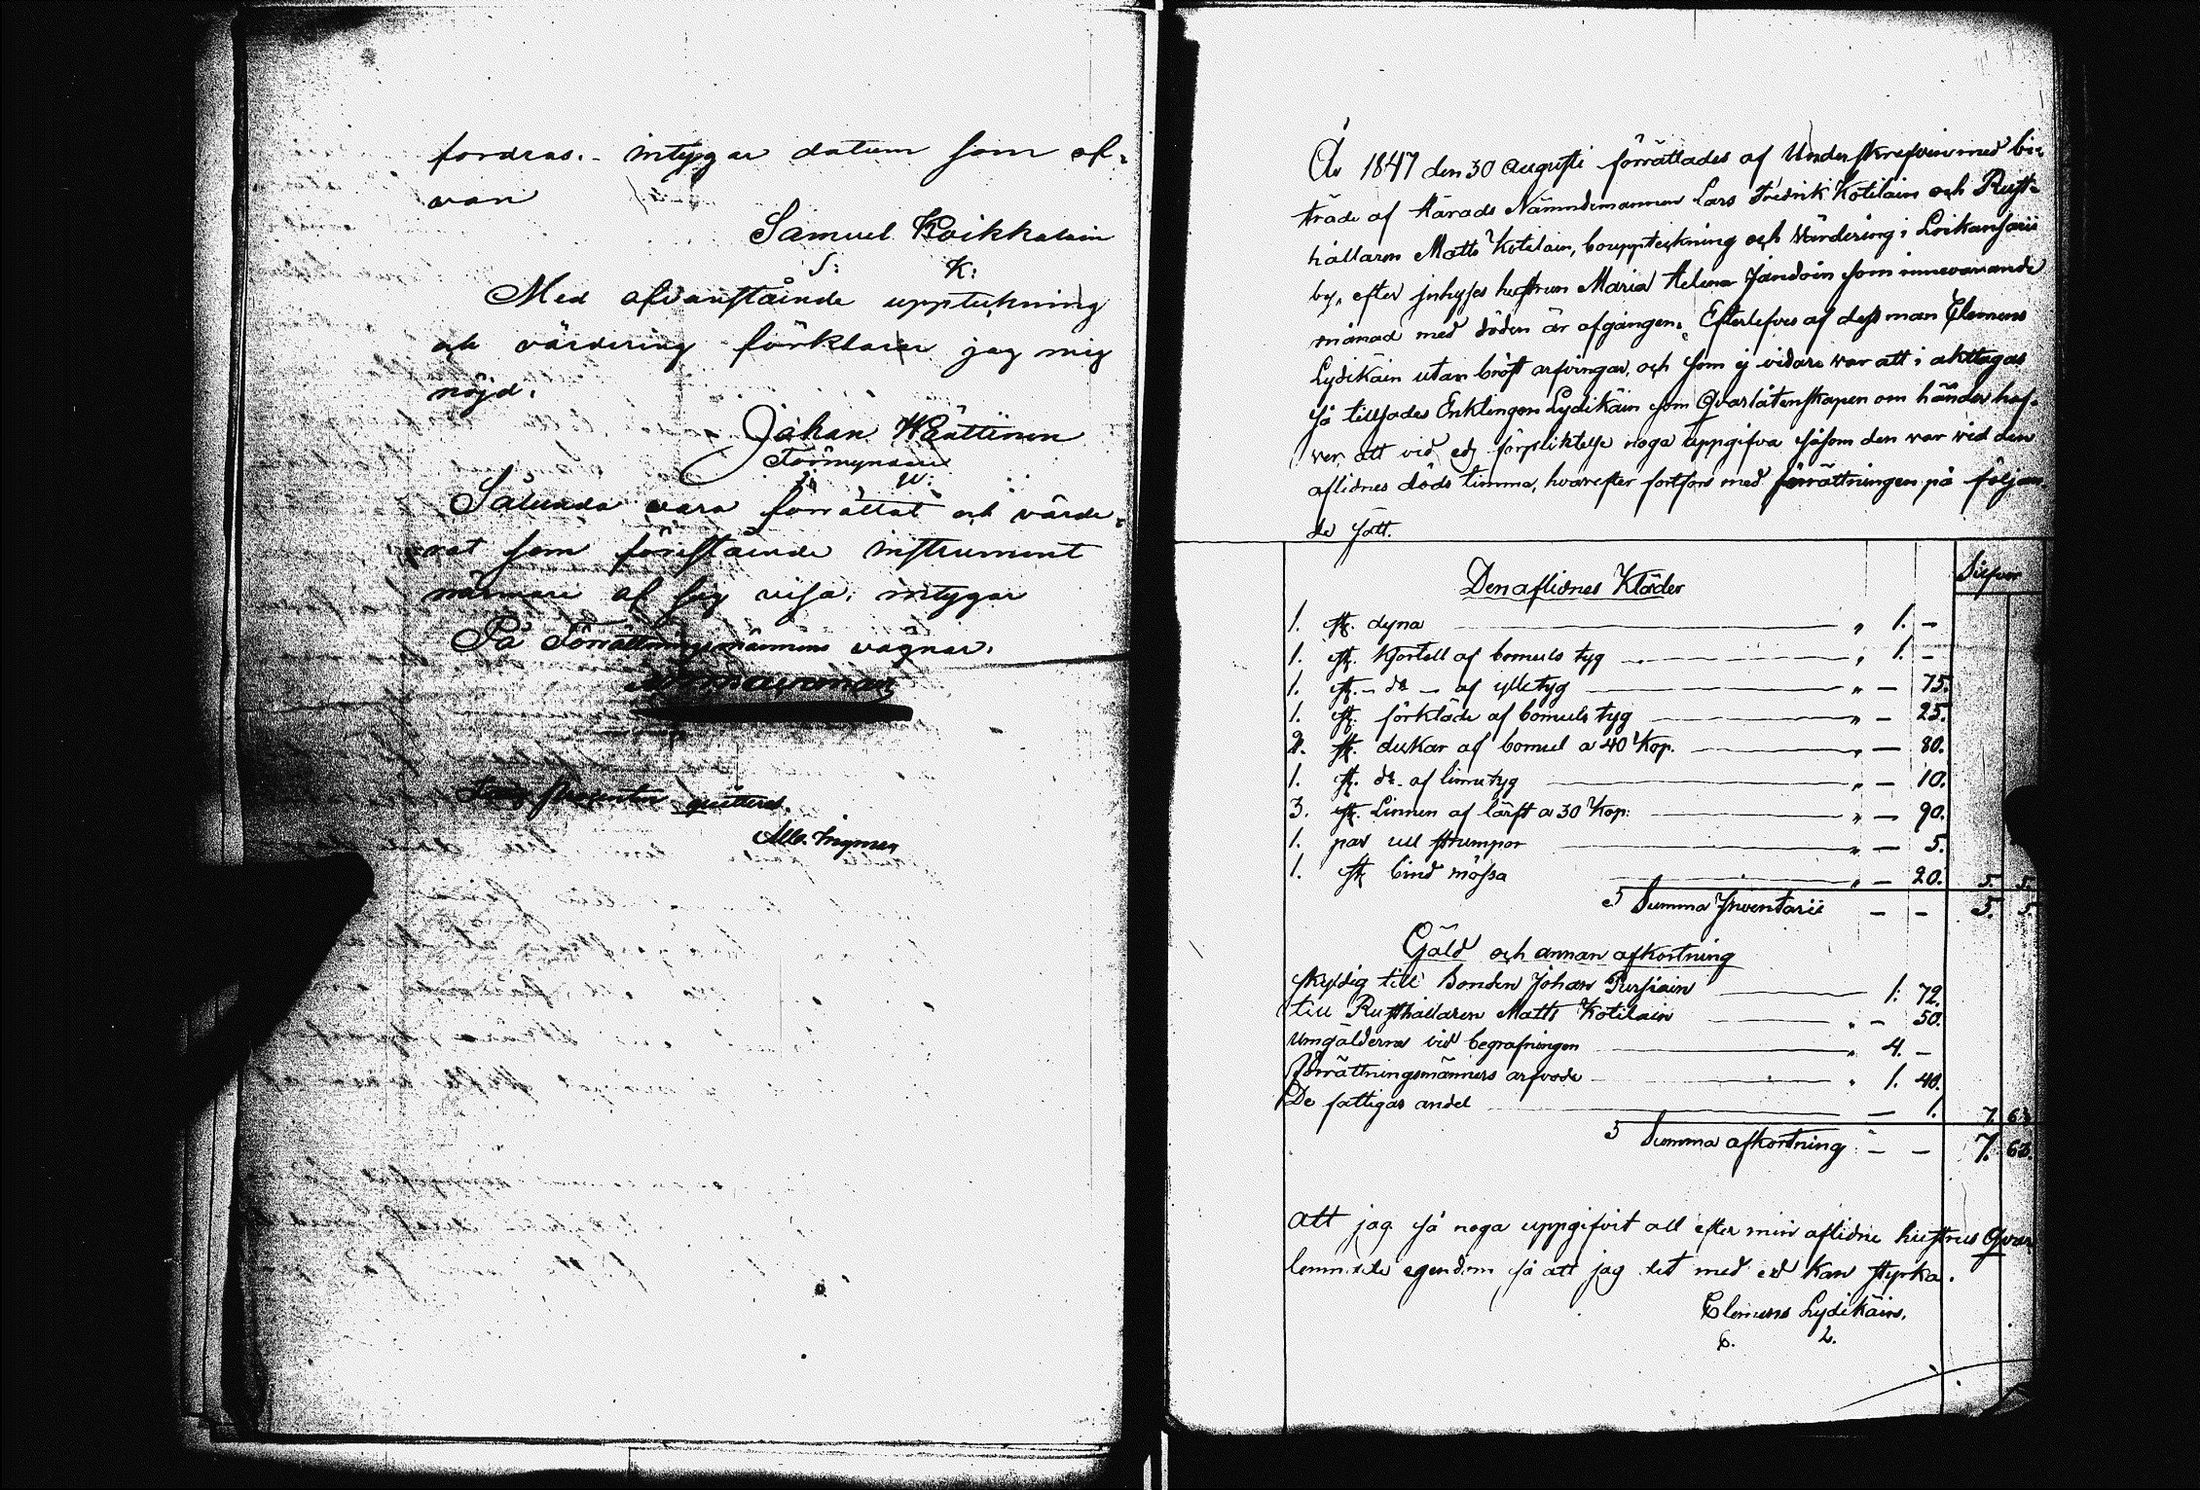 fordras. intygar datum som of-
van
Samuel Koikkalain
S: K:
Med ofvanstående uppteckning
och värdering förklarar jag mig
nöjd.
Johan Wäättinen
Förmyndare
J: W:
Sålunda vara förrättat och värde-
rat som förestående instrument
närmare af sig visa, intygar
På Förrättningsmännens vägnar.
procenten quitteras.
År 1847 den 30 Augusti förrättades af Underskrefven med bi-
träde af Härads Nämndemannen Lars Fredrik Kotilain och Rust-
hållaren Matts Kotilain, bouppteckning och Värdering i Loikansaari
by, efter inhyses hustrun Maria Helena Jandoin som innevarande
månad med döden är afgången. Efterlefves af dess man Clemens
Lydikäin utan bröst arfvingar, och som ej vidare var att i akttagas
så tillsades Enklingen Lydikäin som Qvarlåtenskapen om händer haf-
ver, att vid edz förpliktelse noga uppgifva såsom den var vid den
aflidnes döds timma, hvarefter fortfors med förrättningen på följan-
de sätt.
Silfver
Den aflidnes Kläder
1. st. dyna " 1. -
1. st. Kjortell af bomuls tyg " 1. -
1. st. - do - af ylletyg " - 75.
1. st. förkläde af bomuls tyg " - 25.
2. st. dukar af bomul a 40 Kop. " - 80.
1. st. do af linne tyg " - 10.
3. st. Linnen af lärft a 30 Kop: " - 90.
1. par ull strumpor " - 5.
1. st bind mössa " - 20. 5. 5.
Summa Inventarii - - 5. 5.
Gäld och annan afkortning
skyldig till Bonden Johan Pursiain 1. 72.
till Rusthållaren Matts Kotilain " - 50.
Umgälderna vid begrafningen " 4. -
Förrättningsmänners arfvode " 1. 40.
De fattigas andel - 1. 7. 63.
Summa afkortning - - 7. 63.
Att jag så noga uppgifvit all efter min aflidne hustrus Qvar
lemnade egendom så att jag det med ed kan styrka.
Clemens Lydikäin.
C. L.